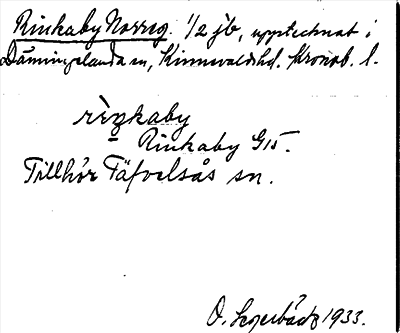 Rinkaby Norreg. 1/2 jb, upptecknat i
Dänningelanda sn, Kinnevaldshd. Kronob. l.
rìŋkaby
Rinkaby G15.
Tillhör Täfvelsås sn.
O. 1933.